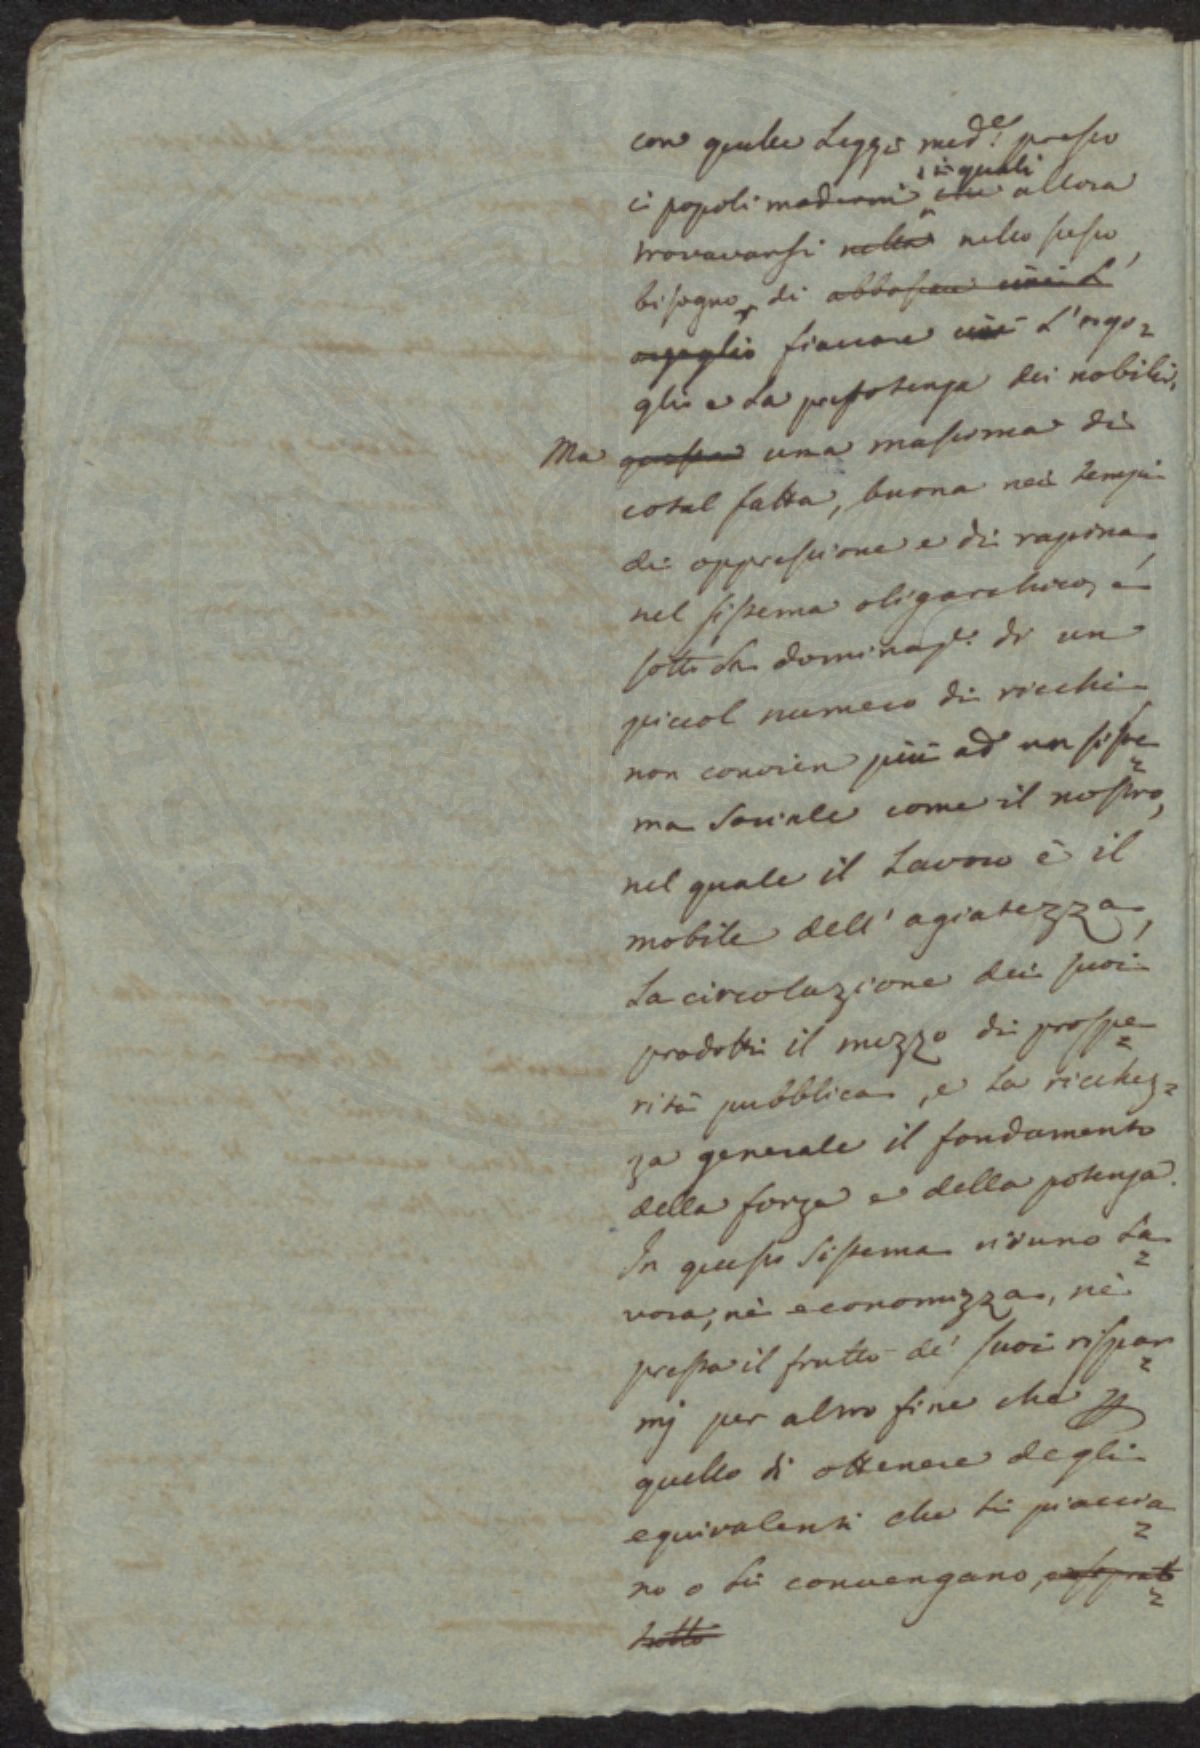 con quelle Leggi med.e presso
i quali
i popoli moderni che allora
trovavansi nella nello stesso
bisogno di abbassare così l'
orgoglio fiaccare così L'orgo=
glio e La prepotenza dei nobili.
Ma questa una massima di
cotal fatta, buona nei tempi
di oppressione e di rapina
nel sistema oligarchico, e
sotto La dominaz.e di un
piccol numero di ricchi
non convien più ad un siste=
ma Sociale come il nostro,
nel quale il Lavoro è il
mobile dell'agiatezza,
La circolazione dei suoi
prodotti il mezzo di prospe=
rità pubblica, e La ricchez=
za generale il fondamento
della forza e della potenza.
In questo Sistema niuno La=
vora, nè economizza, nè
presta il frutto de' suoi rispar=
mj per altro fine che
quello di ottenere degli
equivalenti che Li piaccia=
no o Li convengano,